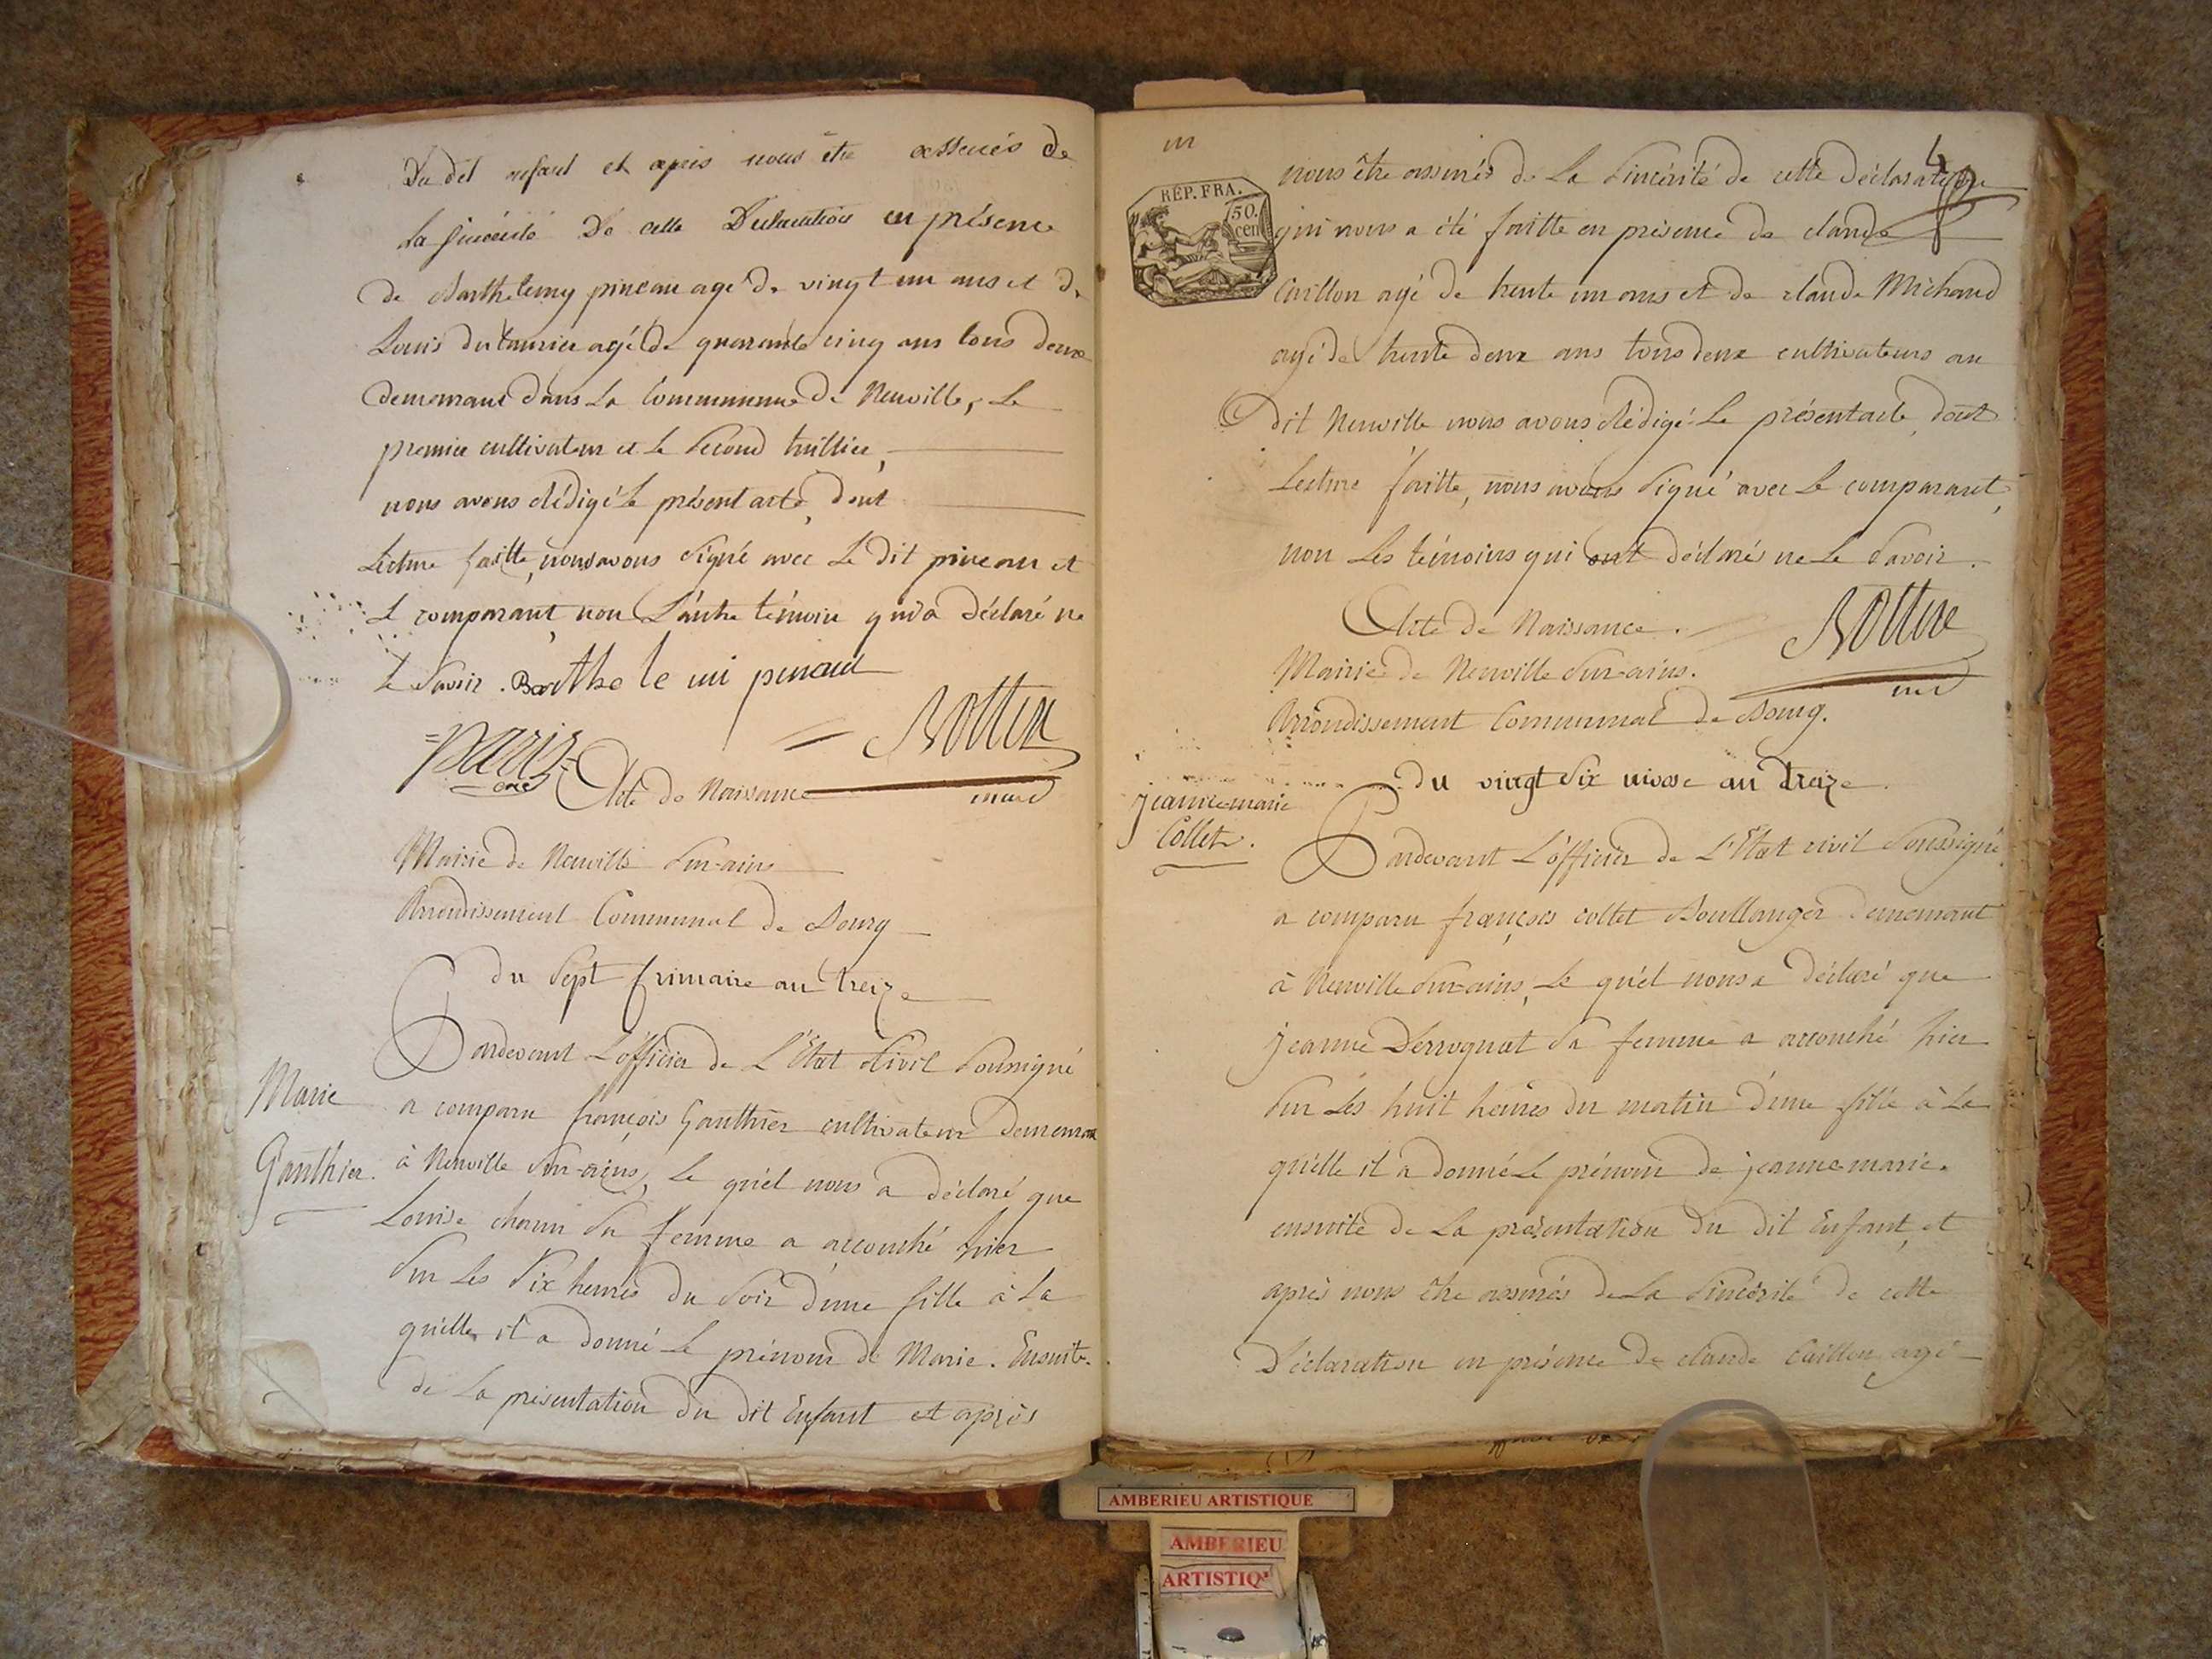 Du dit enfant et après nous être assurés de
La sincérité De cette Déclaration en présence
de Barthelemy pineau agé de vingt un ans et de
Louis agé de quarante cinq ans tous deux
demeurant dans La Commune de Neuville, Le
premier cultivateur et le second tuillier,
nous avons rédigé Le présent acte, dont
Lecture faitte, nous avons signé avec Le dit pineau et
Le comparant, non L'autre témoin qui a déclaré ne
Le savoir. Barthe le mi
paris Bottex
maire
Acte de Naissance
Mairie de Neuville sur-ains
Arrondissement Communal de Bourg
du sept frimaire an treize
Pardevant L'officier de L'Etat Civil soussigné
Marie
Gauthier.
a comparu françois Gauthier cultivateur demeurant
à Neuville sur-ains, Le quel nous a déclaré que
Louise sa femme a accouché hier
sur Les six heures du soir d'une fille à La
quelle il a donné Le prénom de Marie. Ensuite
de La présentation du dit Enfant et après
m
4
RÉP. FRA.
50.
cen
nous être assurés de La sincérité de cette déclaration
qui nous a été faitte en présence de claude
Caillon agé de trente un ans et de claude Michaud
agé de trente deux ans tous deux cultivateurs au
dit Neuville nous avons Rédigé Le présent acte, dont
Lecture faitte, nous avons signé avec Le comparant,
non Les témoins qui ont déclaré ne Le savoir.
Acte de Naissance.
Bottex
Mairie de Neuville sur-ains.
Arrondissement Communal de Bourg.
du vingt six nivose an treize.
jeanne marie
Collet.
Pardevant L'officier de L'Etat civil soussigné,
a comparu françois collet Boullanger demeurant
à Neuville sur-ains, Le quel nous a déclaré que
jeanne Derrognat sa femme a accouché hier
sur Les huit heures du matin d'une fille à La
quelle il a donné Le prénom de jeanne-marie.
ensuite de La présentation du dit Enfant, et
après nous être assurés de La sincérité de cette
Déclaration en présence de claude Caillon, agé
AMBERIEU ARTISTIQUE
AMBERIEU
ARTISTIQ